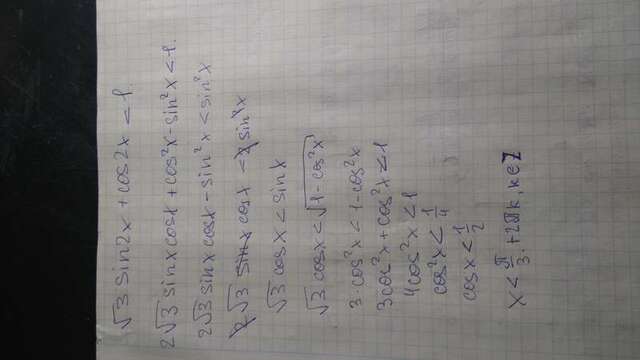 √3 sin2x + cos2x < 1.
2√3 sinx cosx + cos²x - sin²x < 1.
2√3 sinx cosx - sin²x < sin²x
2√3 sinx cosx < 2 sin²x
√3 cosx < sinx
√3 cosx < √(1-cos²x)
3·cos²x < 1-cos²x
3cos²x + cos²x < 1
4cos²x < 1
cos²x < 1/4
cosx < 1/2
x < π/3 + 2πk, k∈Z